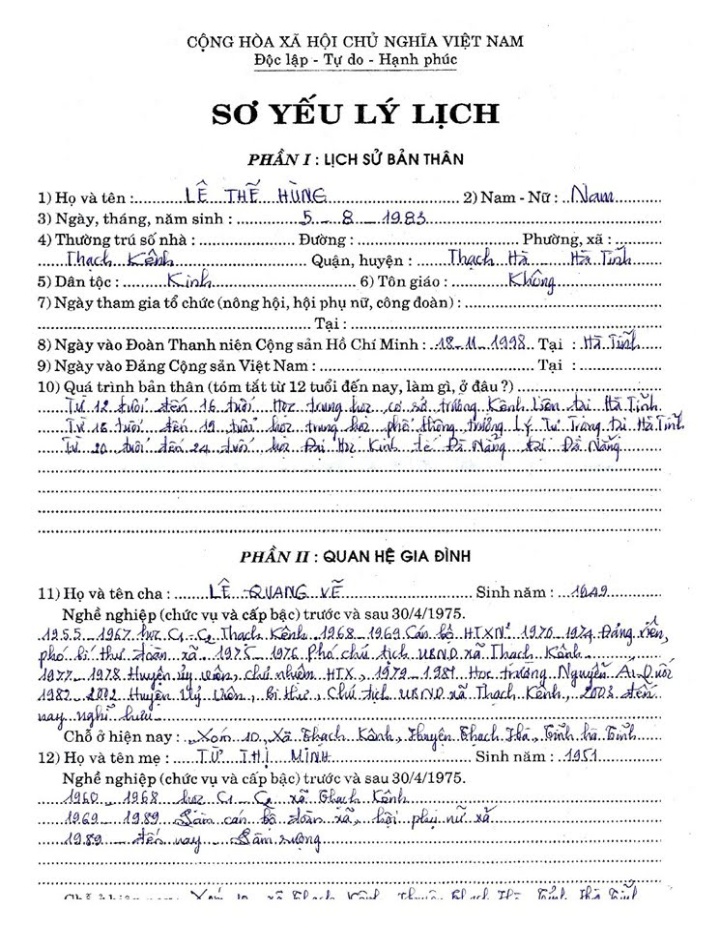 CỘNG HÒA XÃ HỘI CHỦ NGHĨA VIỆT NAM
Độc lập - Tự do - Hạnh phúc
SƠ YẾU LÝ LỊCH
PHẦN I : LỊCH SỬ BẢN THÂN
1) Họ và tên : LÊ THẾ HÙNG 2) Nam - Nữ : Nam
3) Ngày, tháng, năm sinh : 5 - 8 - 1983
4) Thường trú số nhà : Đường : Phường, xã :
Thạch Kênh Quận, huyện : Thạch Hà Hà Tĩnh
5) Dân tộc : Kinh 6) Tôn giáo : Không
7) Ngày tham gia tổ chức (nông hội, hội phụ nữ, công đoàn) :
Tại :
8) Ngày vào Đoàn Thanh niên Cộng sản Hồ Chí Minh : 18-11-1998 Tại : Hà Tĩnh
9) Ngày vào Đảng Cộng sản Việt Nam : Tại :
10) Quá trình bản thân (tóm tắt từ 12 tuổi đến nay, làm gì, ở đâu ?)
Từ 12 tuổi đến 16 tuổi Học trung học cơ sở trường Kênh Liên tại Hà Tĩnh
Từ 16 tuổi đến 19 tuổi học trung học phổ thông trường Lý Tự Trọng tại Hà Tĩnh
Từ 20 tuổi đến 24 tuổi học Đại Học Kinh tế Đà Nẵng tại Đà Nẵng
PHẦN II : QUAN HỆ GIA ĐÌNH
11) Họ và tên cha : LÊ QUANG VẼ Sinh năm : 1949
Nghề nghiệp (chức vụ và cấp bậc) trước và sau 30/4/1975.
1955 - 1967 học C1 - C2 Thạch Kênh 1968 - 1969 Cán bộ 1970 - 1974 Đảng viên,
phó bí thư đoàn xã 1975 - 1976 Phó chủ tịch UBND xã Thạch Kênh
1977 - 1978 Huyện ủy viên, chủ nhiệm HTX, 1979 - 1981 Học trường Nguyễn Ái Quốc
1982 - 2002 Huyện Uỷ viên, bí thư, Chủ tịch UBND xã Thạch Kênh, 2003 đến
nay nghỉ hưu
Chỗ ở hiện nay : Xóm 10, Xã Thạch Kênh, Huyện Thạch Hà, Tỉnh hà Tĩnh
12) Họ và tên mẹ : TỪ THỊ MINH Sinh năm : 1951
Nghề nghiệp (chức vụ và cấp bậc) trước và sau 30/4/1975.
1960 - 1968 học C1 - C2 xã Thạch Kênh
1969 - 1989 Làm cán bộ đoàn xã, hội phụ nữ xã
1989 - đến nay Làm ruộng